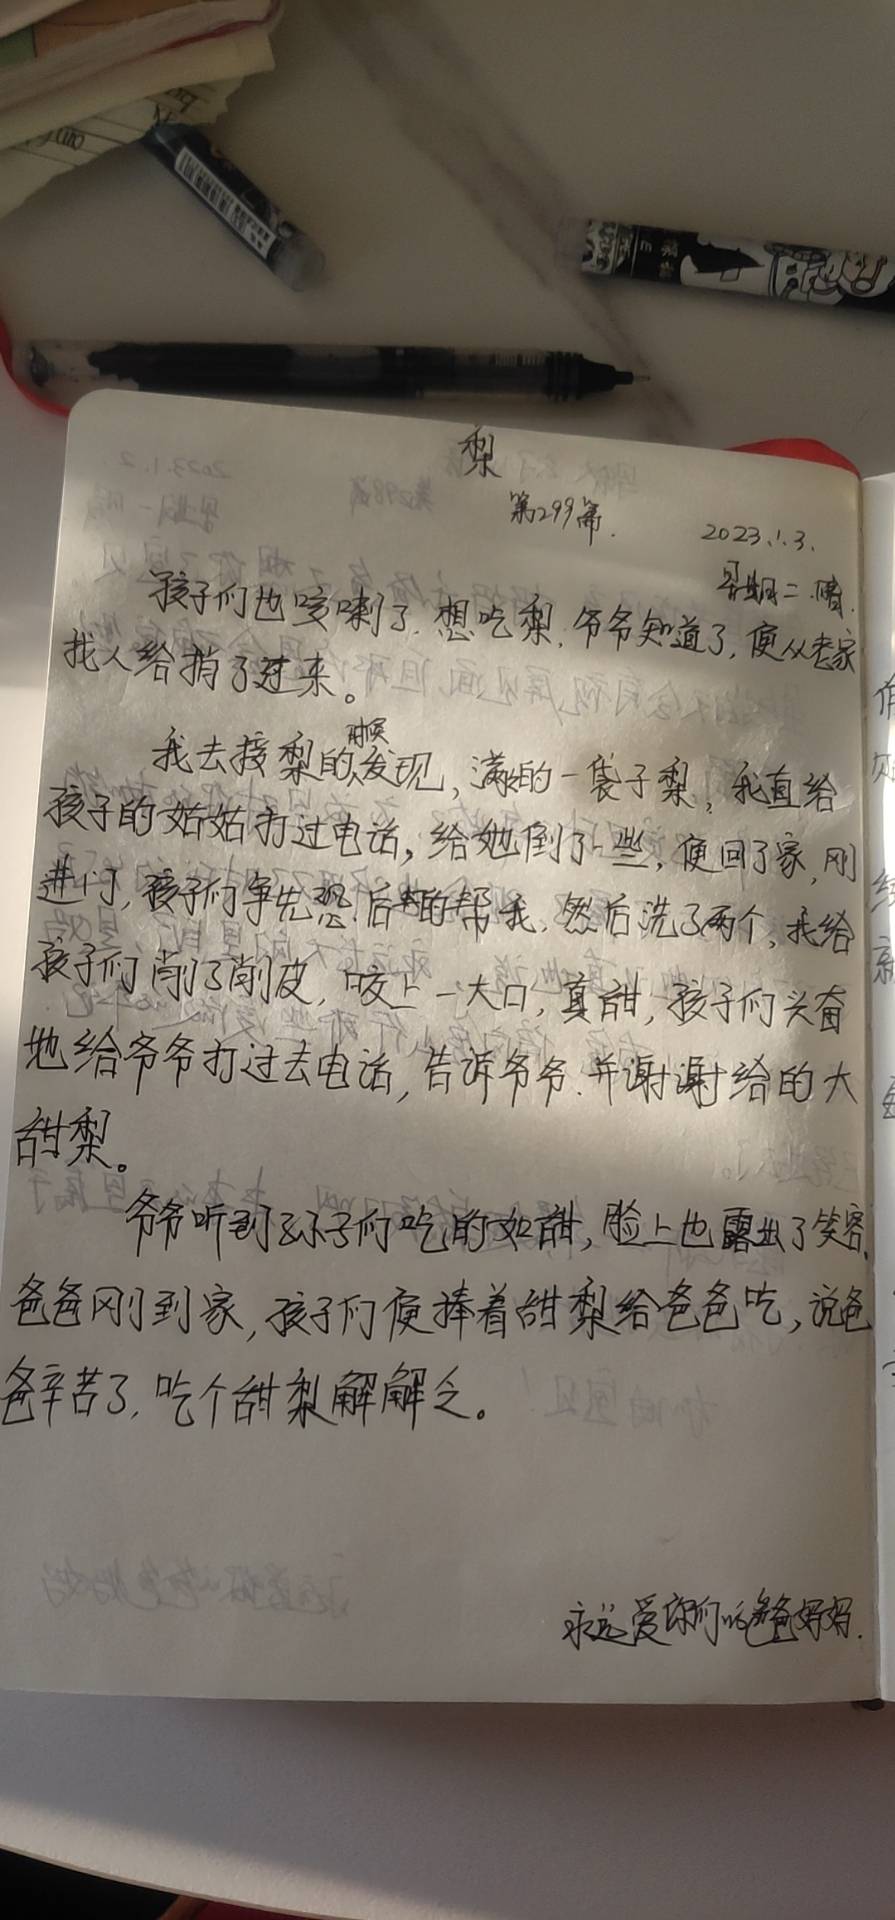 梨
第299篇.
2023.1.3.
星期二.晴.
孩子们也咳嗽了.想吃梨,爷爷知道了,便从老家
找人给捎了过来。
我去接梨的时候发现,满满的一袋子梨,我直给
孩子的姑姑打过电话,给她倒了一些,便回了家,刚
进门,孩子们争先恐后的帮我,然后洗了两个,我给
孩子们削了削皮,咬上一大口,真甜,孩子们兴奋
地给爷爷打过去电话,告诉爷爷.并谢谢给的大
甜梨。
爷爷听到孙子们吃的如甜,脸上也露出了笑容.
爸爸刚到家,孩子们便捧着甜梨给爸爸吃,说爸
爸辛苦了,吃个甜梨解解乏。
永远爱你们的爸爸妈妈.